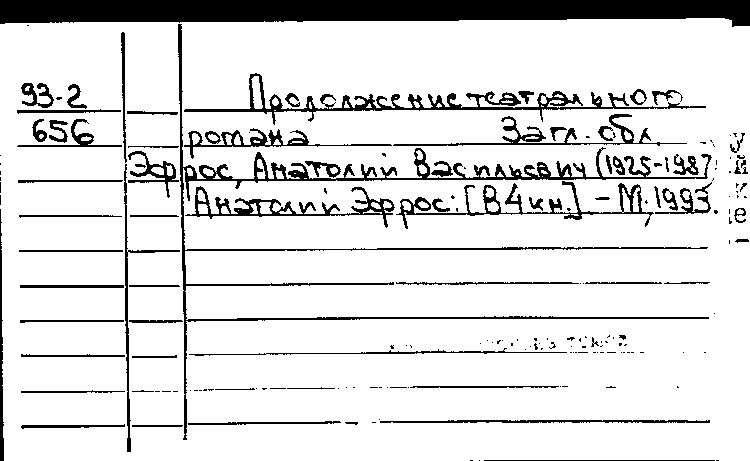 93-2 Продолжение театрального
656 романа. Загл. обл.
Эфрос, Анатолий Васильевич (1925-1987)
Анатолий Эфрос: [В 4 кн.] - М., 1993.